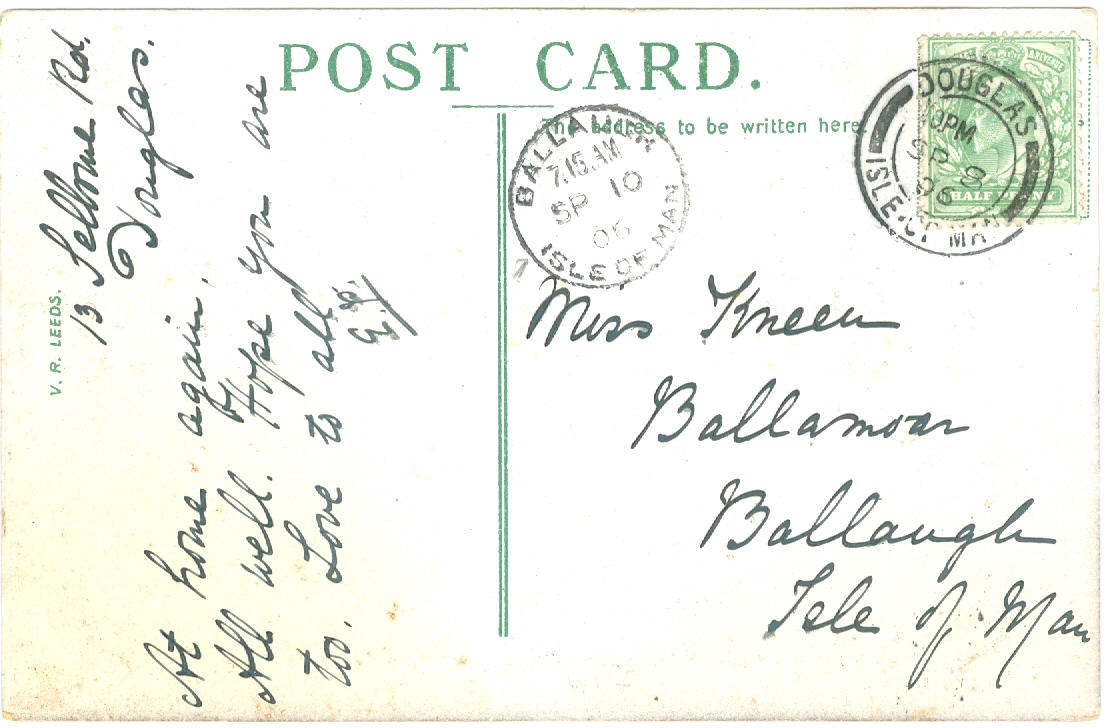 POST CARD.
The address to be written here.
V. R. LEEDS.
13 Selborne Rd.
Douglas.
At home again.
All well. Hope you are
too. Love to all
BALLAUGH
7.15 AM
SP 10
06
ISLE OF MAN
DOUGLAS
PM
SP 8
06
ISLE OF MAN
HALFPENNY
Miss Kneen
Ballamoar
Ballaugh
Isle of Man